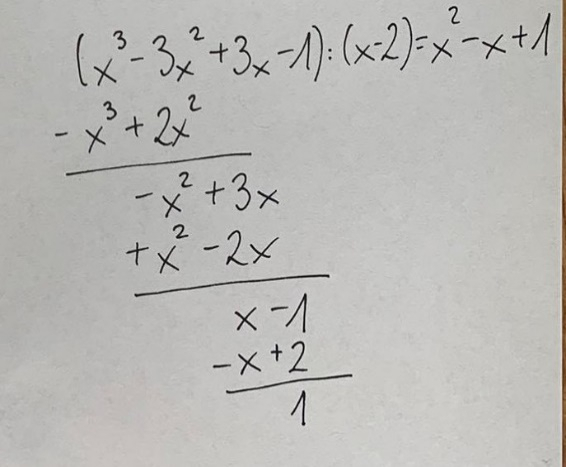 (x³ - 3x² + 3x - 1) : (x - 2) = x² - x + 1
- x³ + 2x²
- x² + 3x
+ x² - 2x
x - 1
- x + 2
1